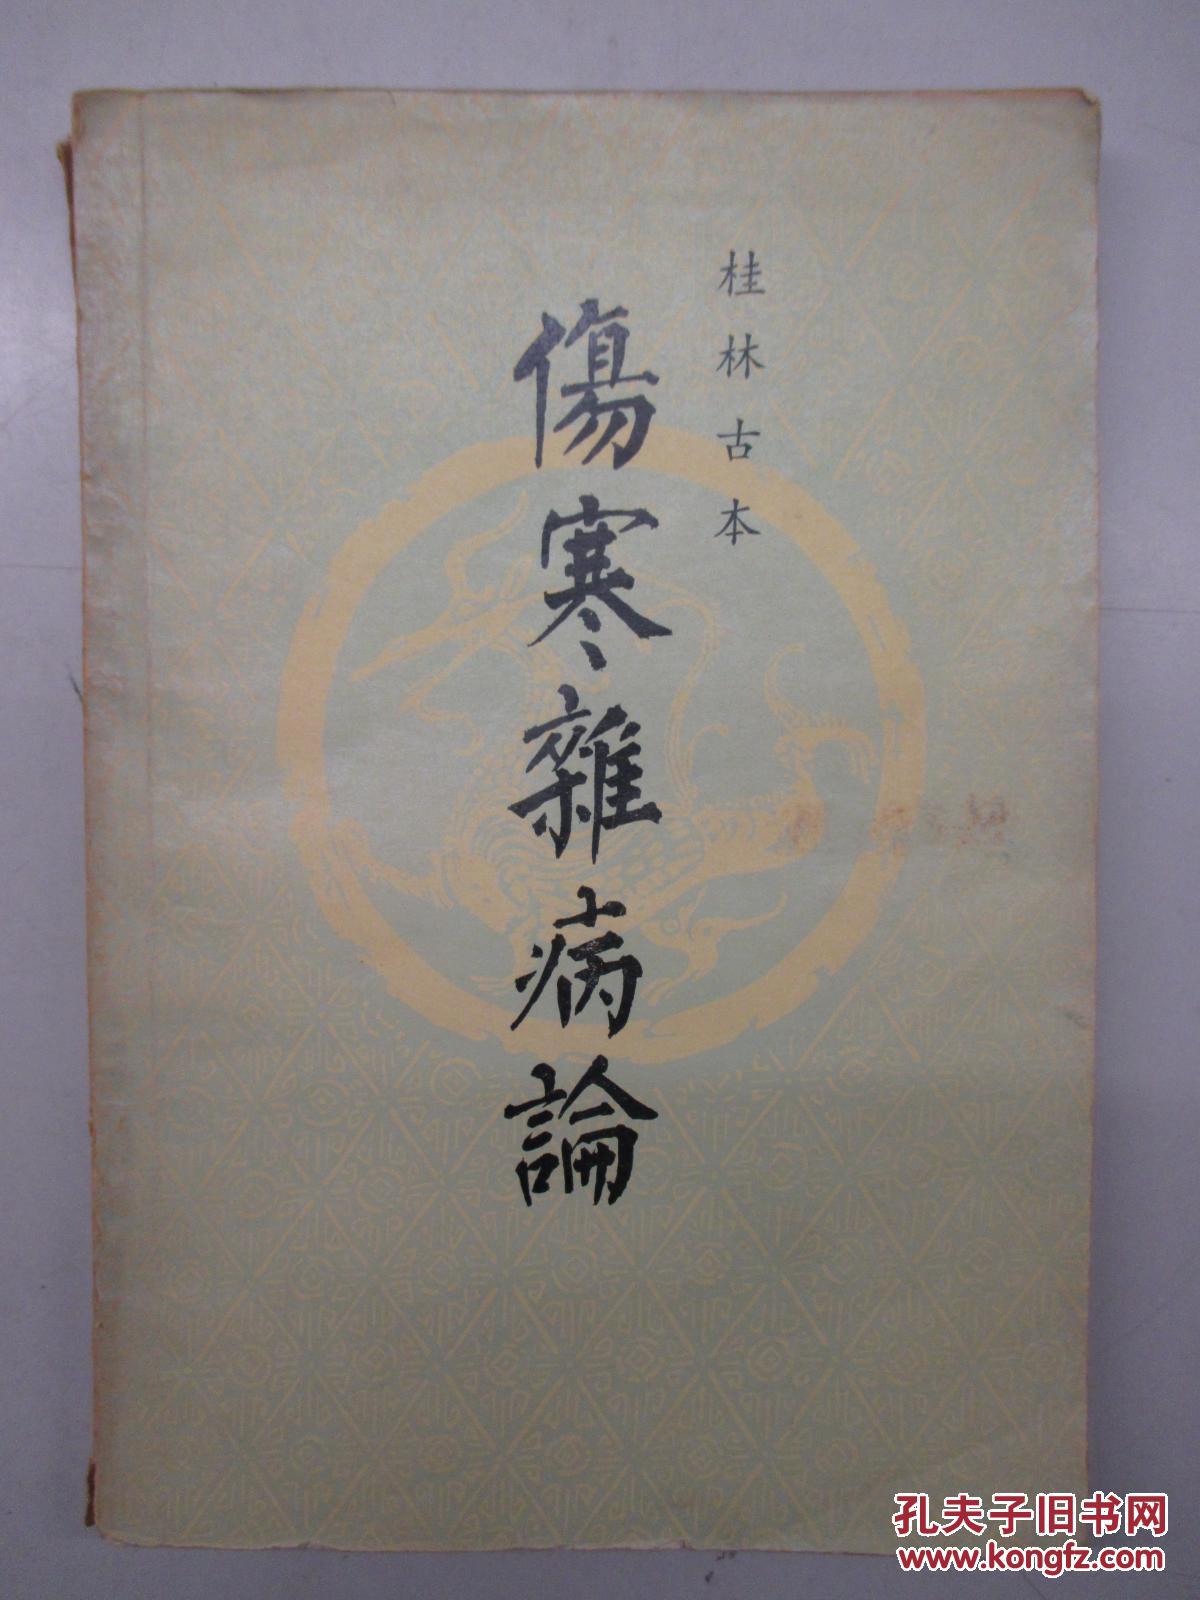 桂林古本
傷寒雜病論
孔夫子旧书网
www.kongfz.com